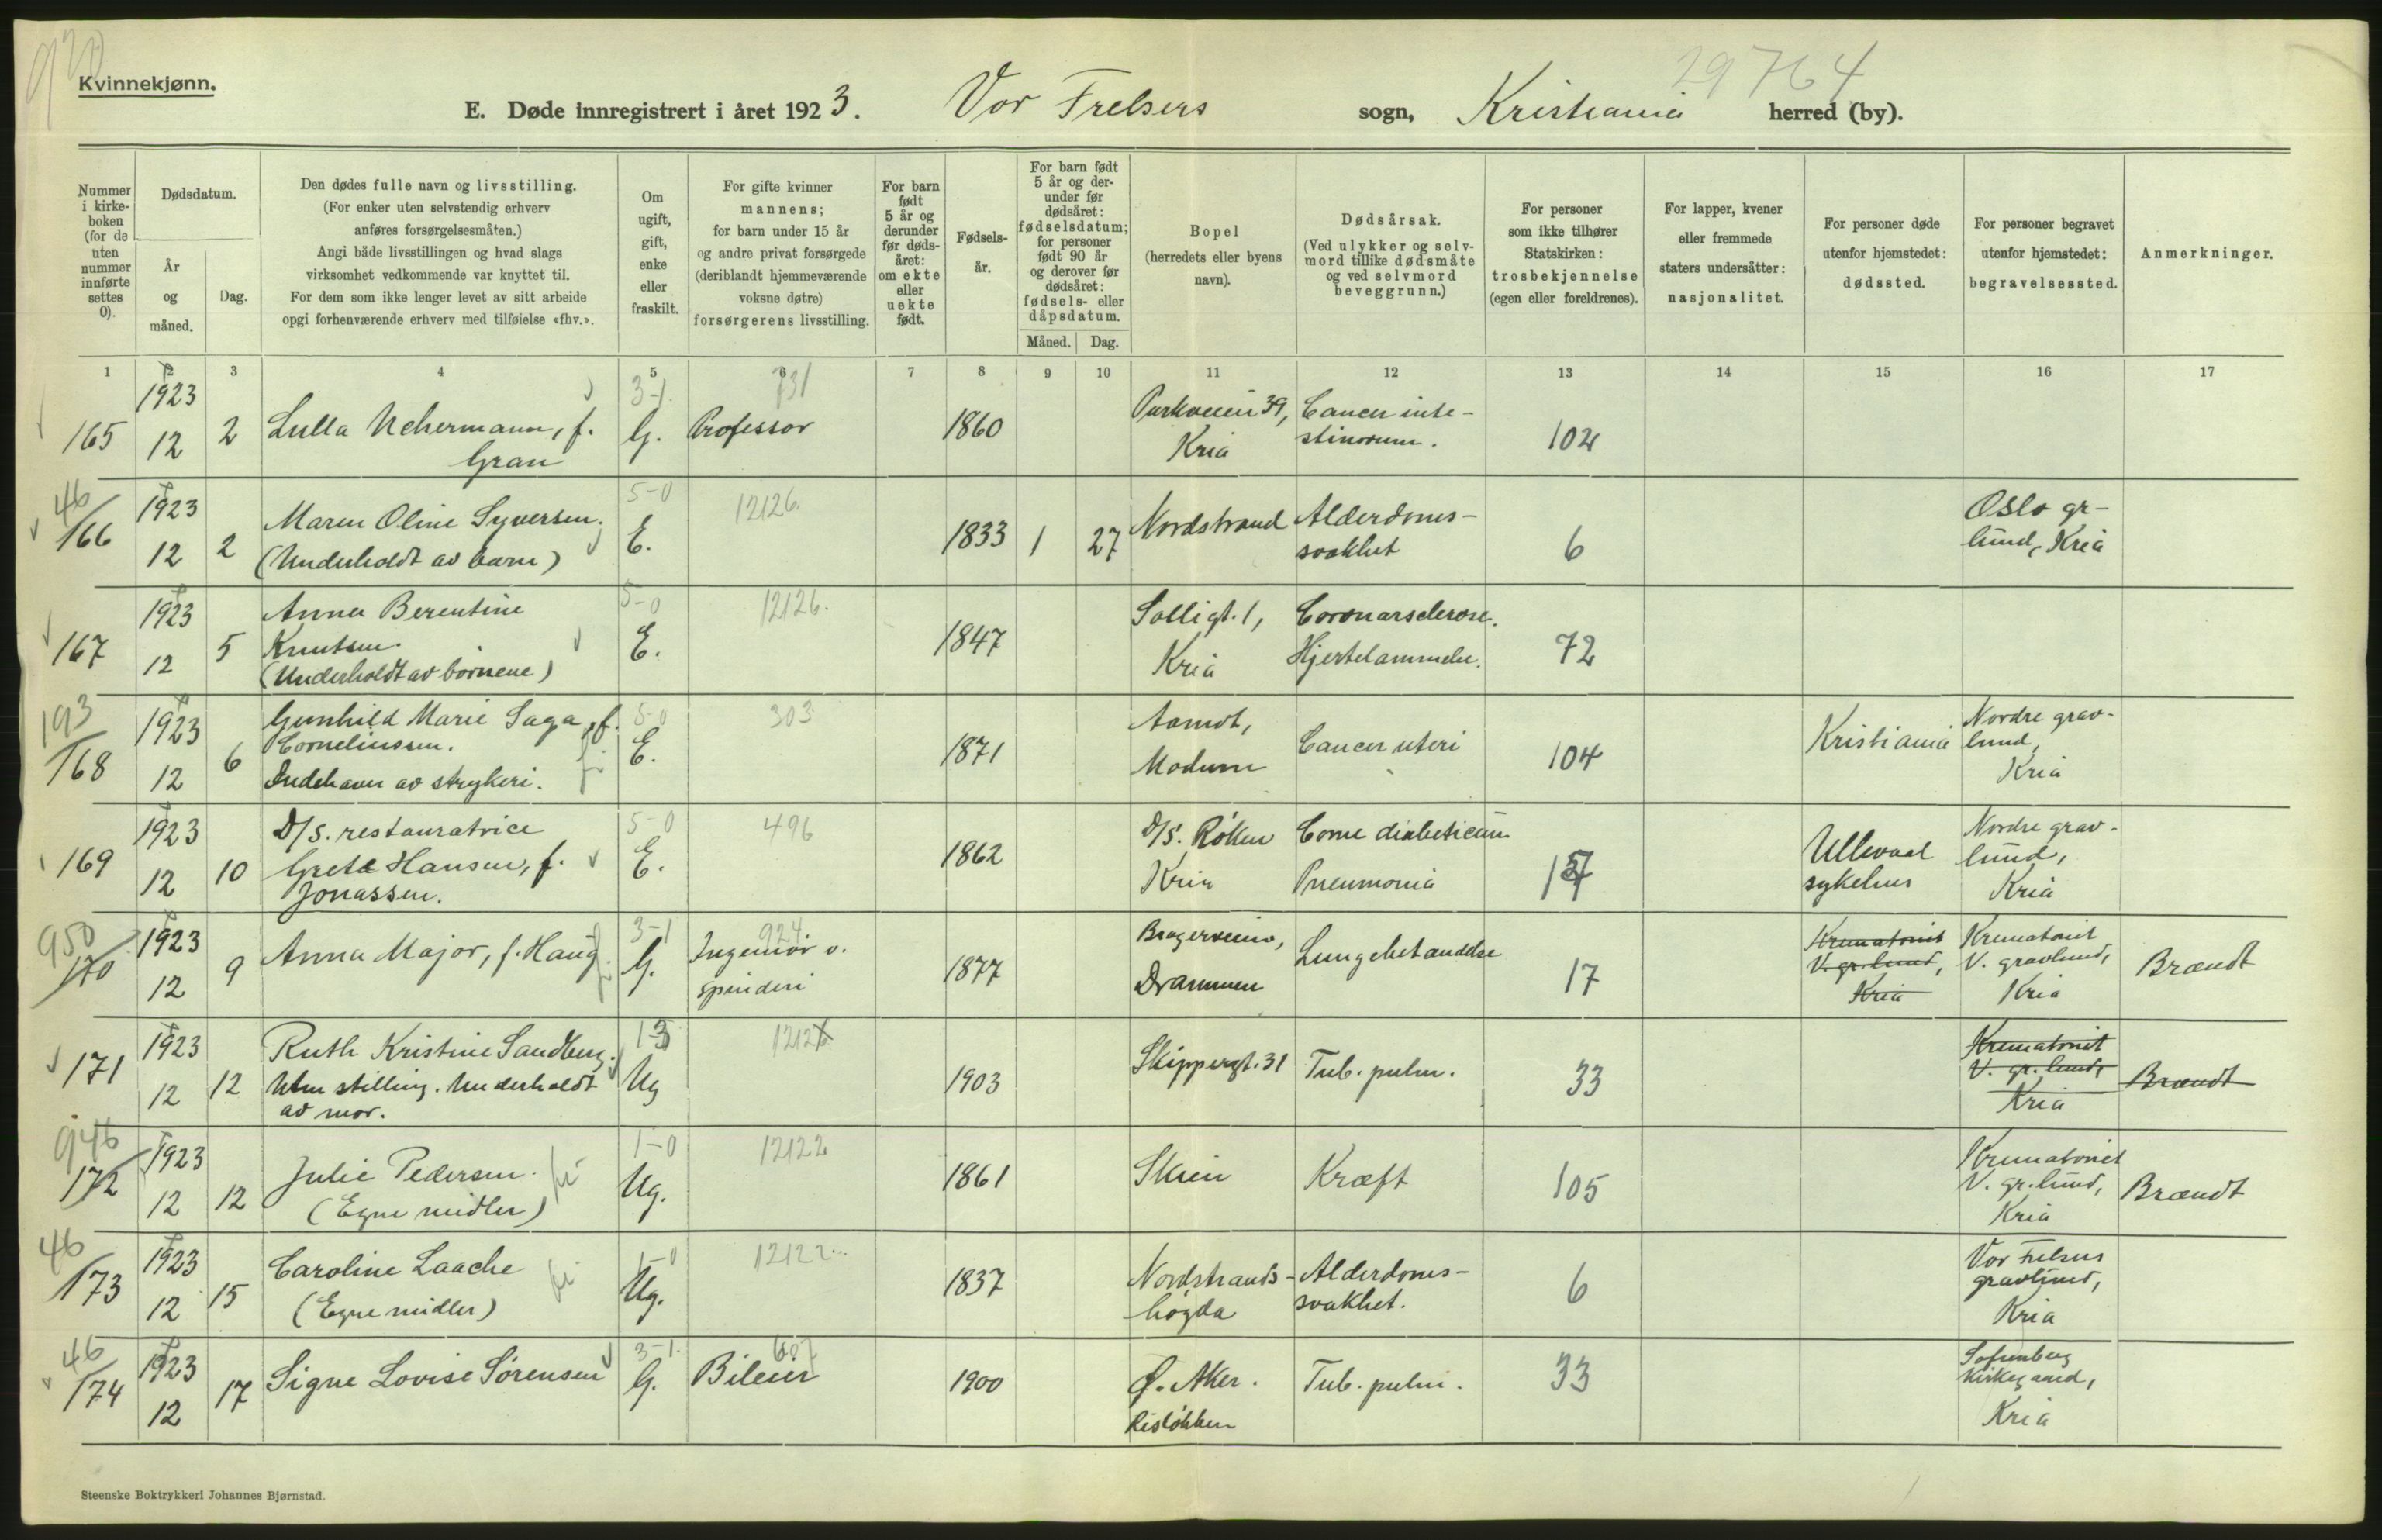 920
Kvinnekjønn.
29 764
E. Døde innregistrert i året 1923. Vor Frelsers sogn, Kristiania herred (by).
Nummer i kirkeboken (for de uten nummer innførte settes 0).
Dødsdatum.
År og måned.
Dag.
Den dødes fulle navn og livsstilling.
(For enker uten selvstendig erhverv
anføres forsørgelsesmåten.)
Angi både livsstillingen og hvad slags
virksomhet vedkommende var knyttet til.
For dem som ikke lenger levet av sitt arbeide
opgi forhenværende erhverv med tilføielse «fhv.».
Om ugift, gift, enke eller fraskilt.
For gifte kvinner
mannens;
for barn under 15 år
og andre privat forsørgede
(deriblandt hjemmeværende
voksne døtre)
forsørgerens livsstilling.
For barn født 5 år og derunder før dødsåret: om ekte eller uekte født.
Fødselsår.
For barn født 5 år og derunder før dødsåret: fødselsdatum; for personer født 90 år og derover før dødsåret: fødsels- eller dåpsdatum.
Måned. Dag.
Bopel
(herredets eller byens
navn).
Dødsårsak.
(Ved ulykker og selvmord tillike dødsmåte og ved selvmord beveggrunn.)
For personer
som ikke tilhører
Statskirken:
trosbekjennelse
(egen eller foreldrenes).
For lapper, kvener
eller fremmede
staters undersåtter:
nasjonalitet.
For personer døde
utenfor hjemstedet:
dødssted.
For personer begravet
utenfor hjemstedet:
begravelsessted.
Anmerkninger.
1 2 3 4 5 6 7 8 9 10 11 12 13 14 15 16 17
165 1923 12 2 Lulla Uchermann, f. Gran 3-1 G. 731 Professor 1860 Parkveien 39, Kria Cancer intestinorum. 104
46 166 1923 12 2 Maren Oline Syversen. (Underholdt av barn) 5-0 E. 12126. 1833 1 27 Nordstrand Alderdoms-svakhet 6 Oslo gr-lund, Kria
167 1923 12 5 Anna Berentine Knutsen. (Underholdt av børnene) 5-0 E. 12126. 1847 Solligt. 1, Kria Coronarsclerose. Hjertelammelse. 72
193 168 1923 12 6 Gunhild Marie Saga, f. Corneliussen. Indehaver av strykeri. 5-0 E. 303 1871 Aamot, Modum Cancer uteri 104 Kristiania Nordre grav-lund, Kria
169 1923 12 10 D/s. restauratrice Grete Hansen, f. Jonassen. 5-0 E. 496 1862 D/s. Røken Kria Come diabeticum Pneumonia Ullevaal sykehus Nordre grav-lund, Kria
950 170 1923 12 9 Anna Major, f. Haug 3-1 G. 924 Ingeniør v. spinderi 1877 Drammen Lungebetændelse 17 Krematoriet V. gr. lund, Kria Krematoriet V. gravlund, Kria Brændt
171 1923 12 12 Ruth Kristine Sandberg. Uten stilling. Underholdt av mor. Ug 1903 Skippergt. 31 Tub. pulm. 33 Krematoriet V. gr. lund, Kria Brændt
946 172 1923 12 12 Julie Pedersen. (Egne midler) 1-0 Ug. 12122 1861 Skien Kræft 105 Krematoriet V. gr. lund, Kria Brændt
46 173 1923 12 15 Caroline Laache (Egne midler) 1-0 Ug. 12122 1837 Nordstrands-høgda Alderdoms-svakhet. 6 Vor Frelsers gravlund, Kria
46 174 1923 12 17 Signe Lovise Sørensen 3-1. G. Bileier 1900 Ø. Aker. Risløkken Tub. pulm. 33 Sofienberg kirkegaard, Kria
Steenske Boktrykkeri Johannes Bjørnstad.